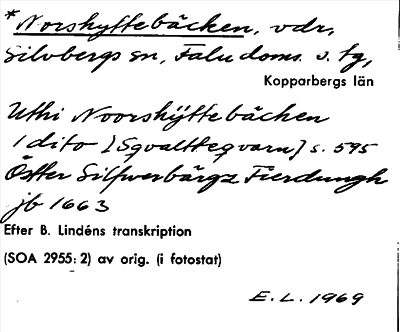 *Norshyttebäcken, vdr,
Silvbergs sn, Falu doms. o. tg,
Kopparbergs län
Uthi Noorshÿttebächen
1 dito [Sqvaltteqvarn] s. 595
Öster Silfwerbärgz Fierdungh
jb 1663
Efter B. Lindéns transkription
(SOA 2955: 2) av orig. (i fotostat)
E. L. 1969